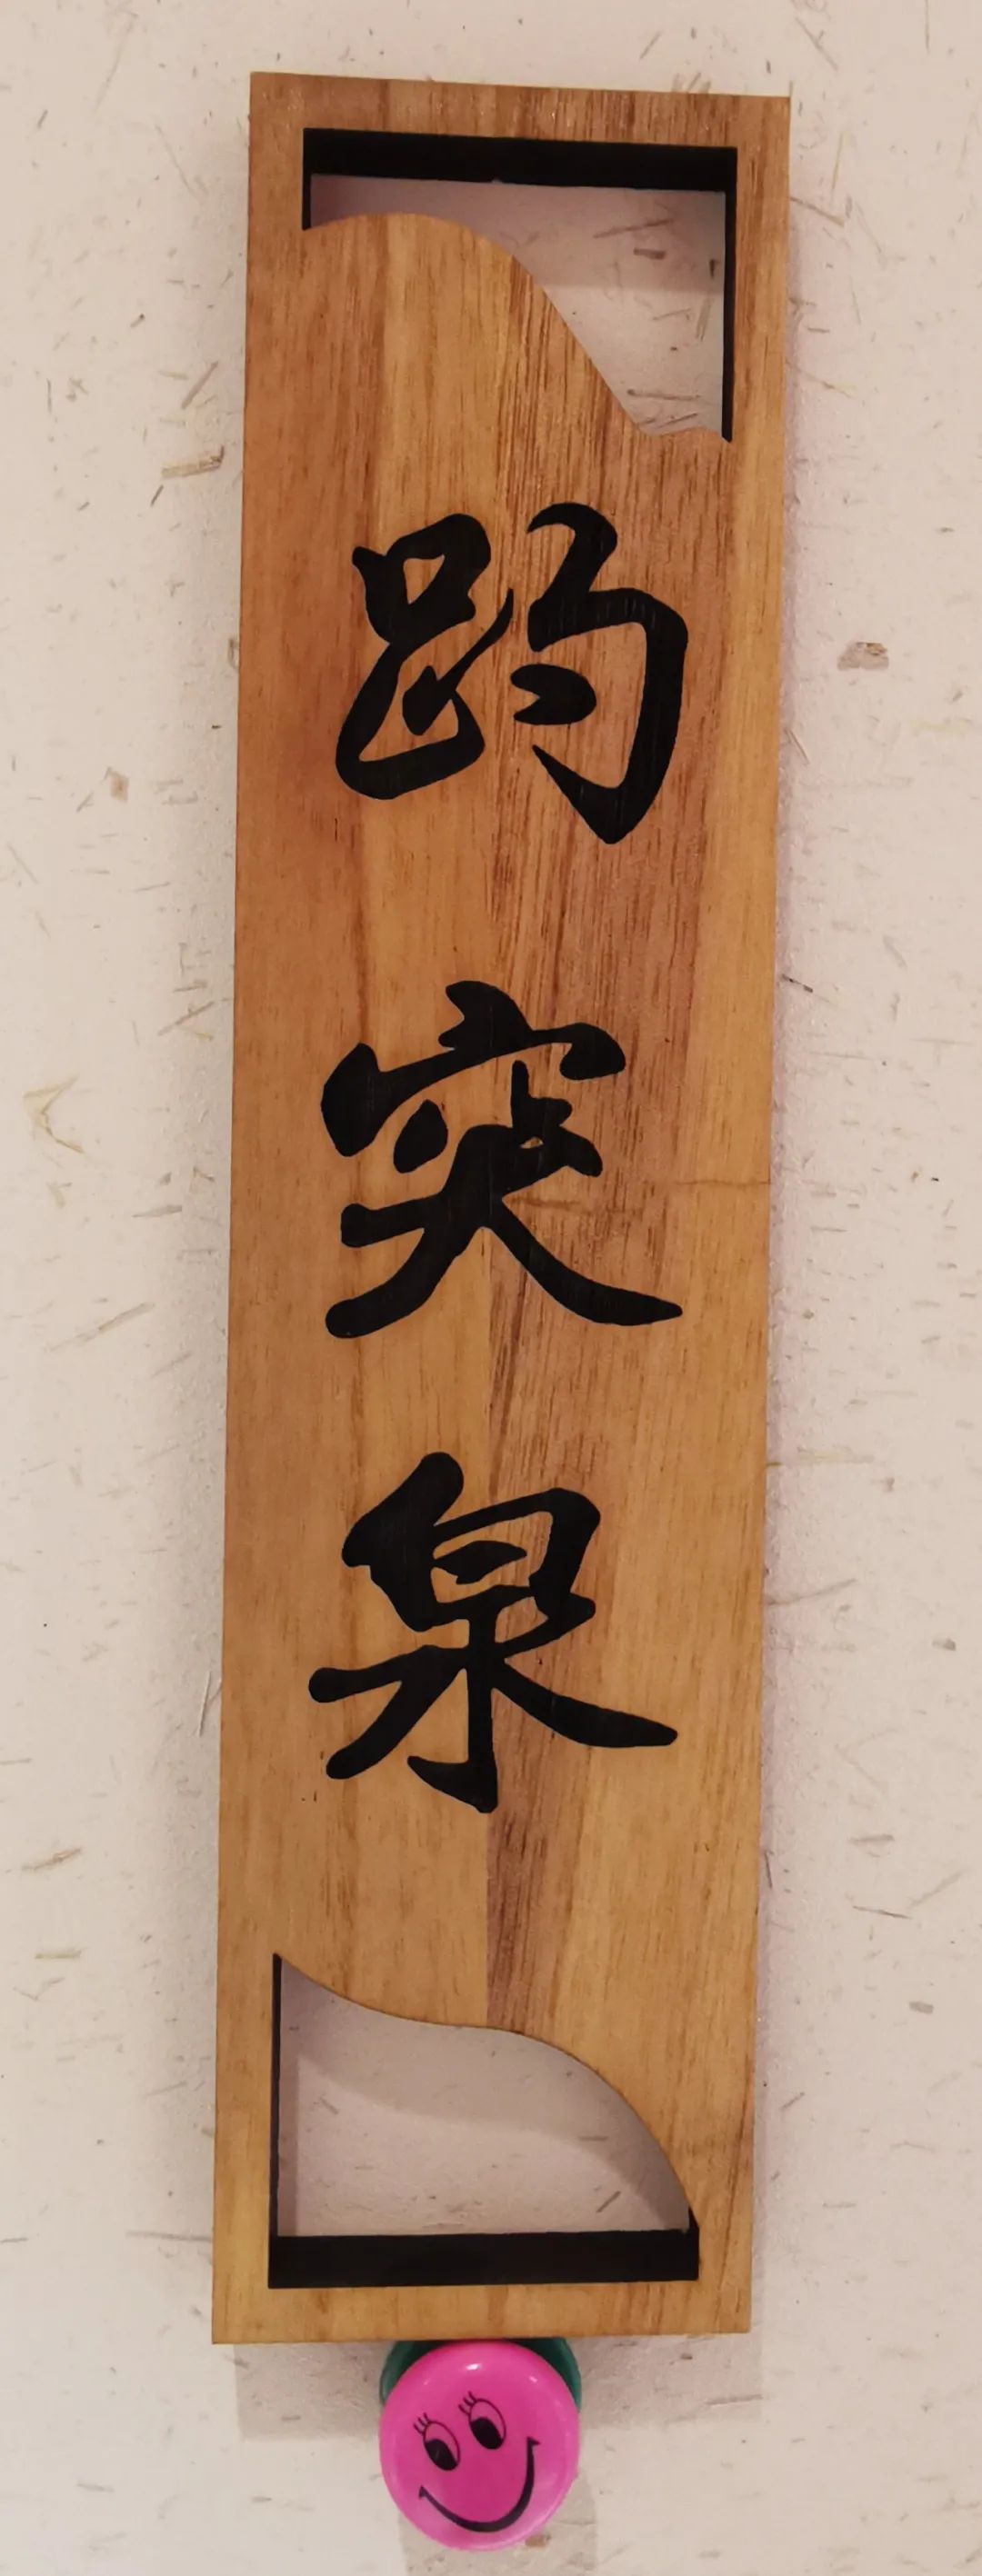 趵突泉